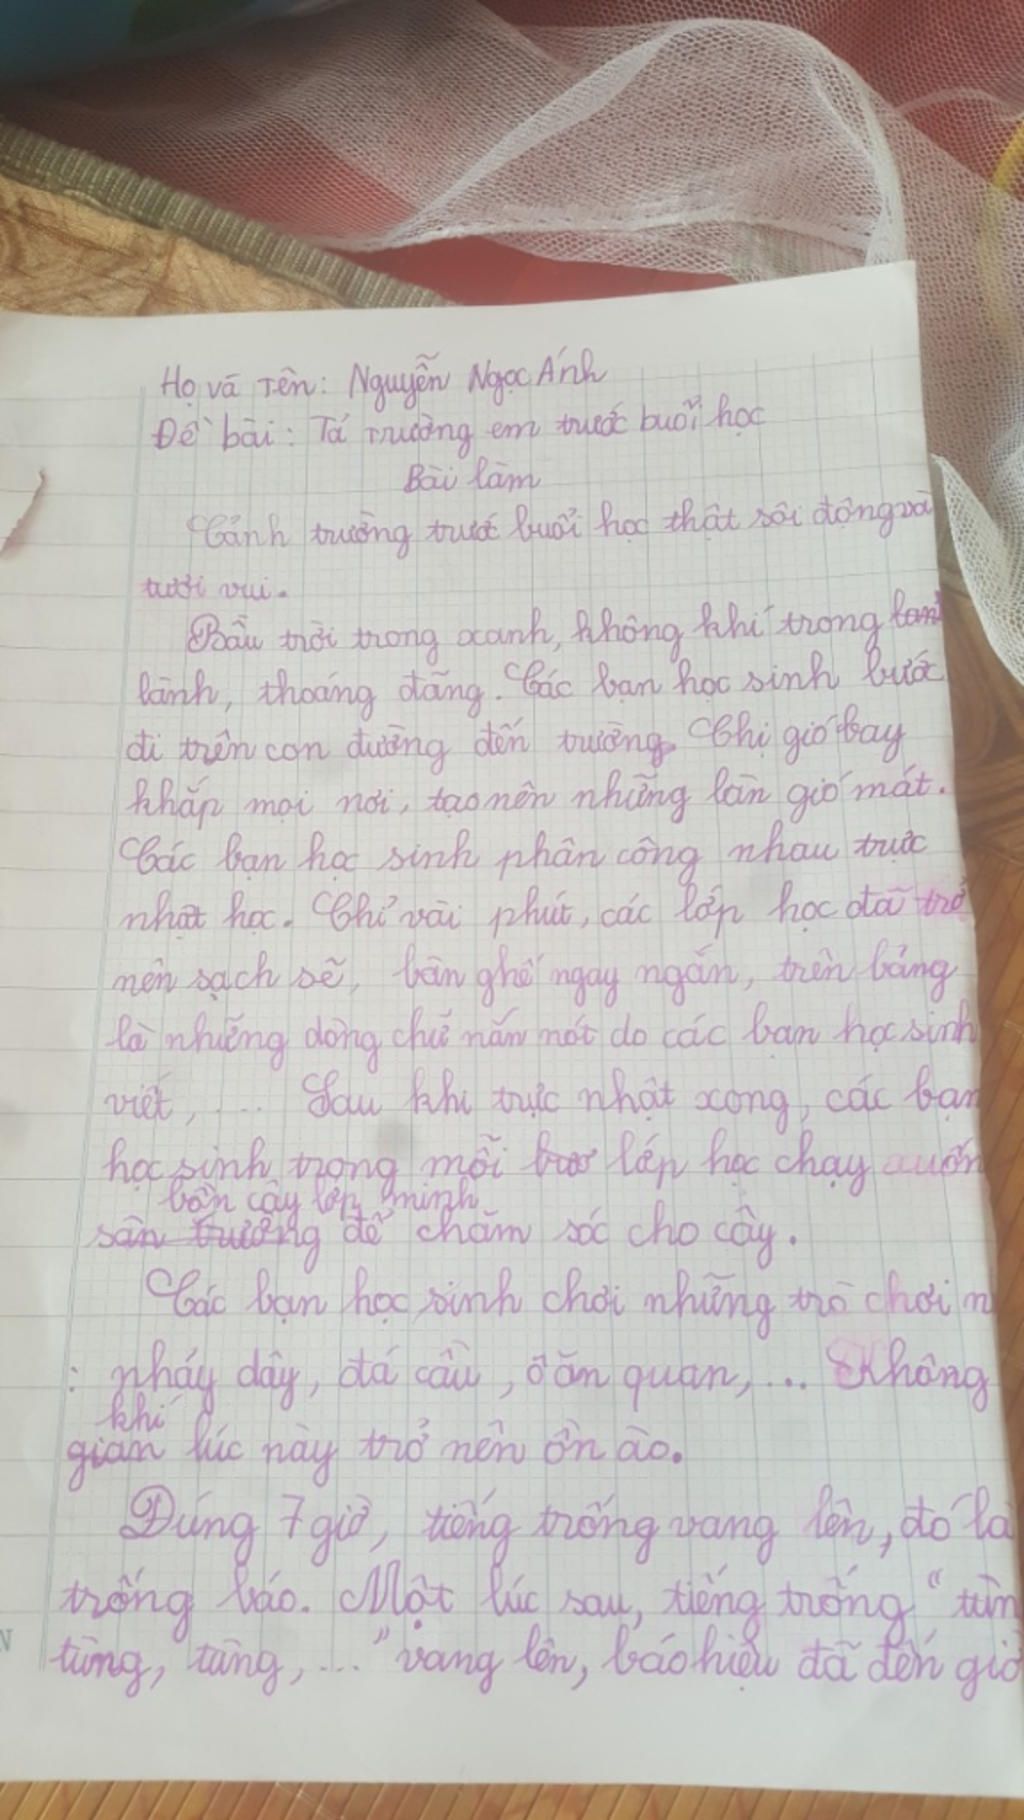 Họ và Tên: Nguyễn Ngọc Ánh
Đề bài: Tả Trường em trước buổi học
Bài làm
Cảnh trường trước buổi học thật sôi động và
tươi vui.
Bầu trời trong xanh, không khí trong lan
lành, thoáng đãng. Các bạn học sinh bước
đi trên con đường đến trường. Chị gió bay
khắp mọi nơi, tạo nên những làn gió mát.
Các bạn học sinh phân công nhau trực
nhật học. Chỉ vài phút, các lớp học đã trở
nên sạch sẽ, bàn ghế ngay ngắn, trên bảng
là những dòng chữ nắn nót do các bạn học sinh
viết, .... Sau khi trực nhật xong, các bạn
học sinh trong mỗi lớp học chạy
bồn cây lớp mình
sân trường để chăm sóc cho cây.
Các bạn học sinh chơi những trò chơi n
: nhảy dây, đá cầu, ô ăn quan, ... Không
khí
gian lúc này trở nên ồn ào.
Đúng 7 giờ, tiếng trống vang lên, đó là
trống báo. Một lúc sau, tiếng trống "tùn
tùng, tùng, ..." vang lên, báo hiệu đã đến giờ